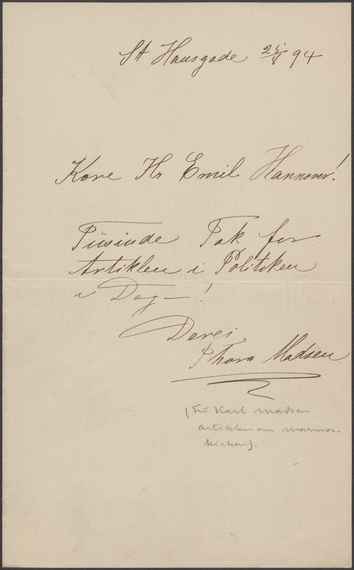 St Hansgade 2/5 94
Kære Hr Emil Hannover!
Tusinde Tak for
Artiklen i Politiken
i Dag —!
Deres
Thora Madsen
(Fru Karl Madsen
artiklen om marmor-